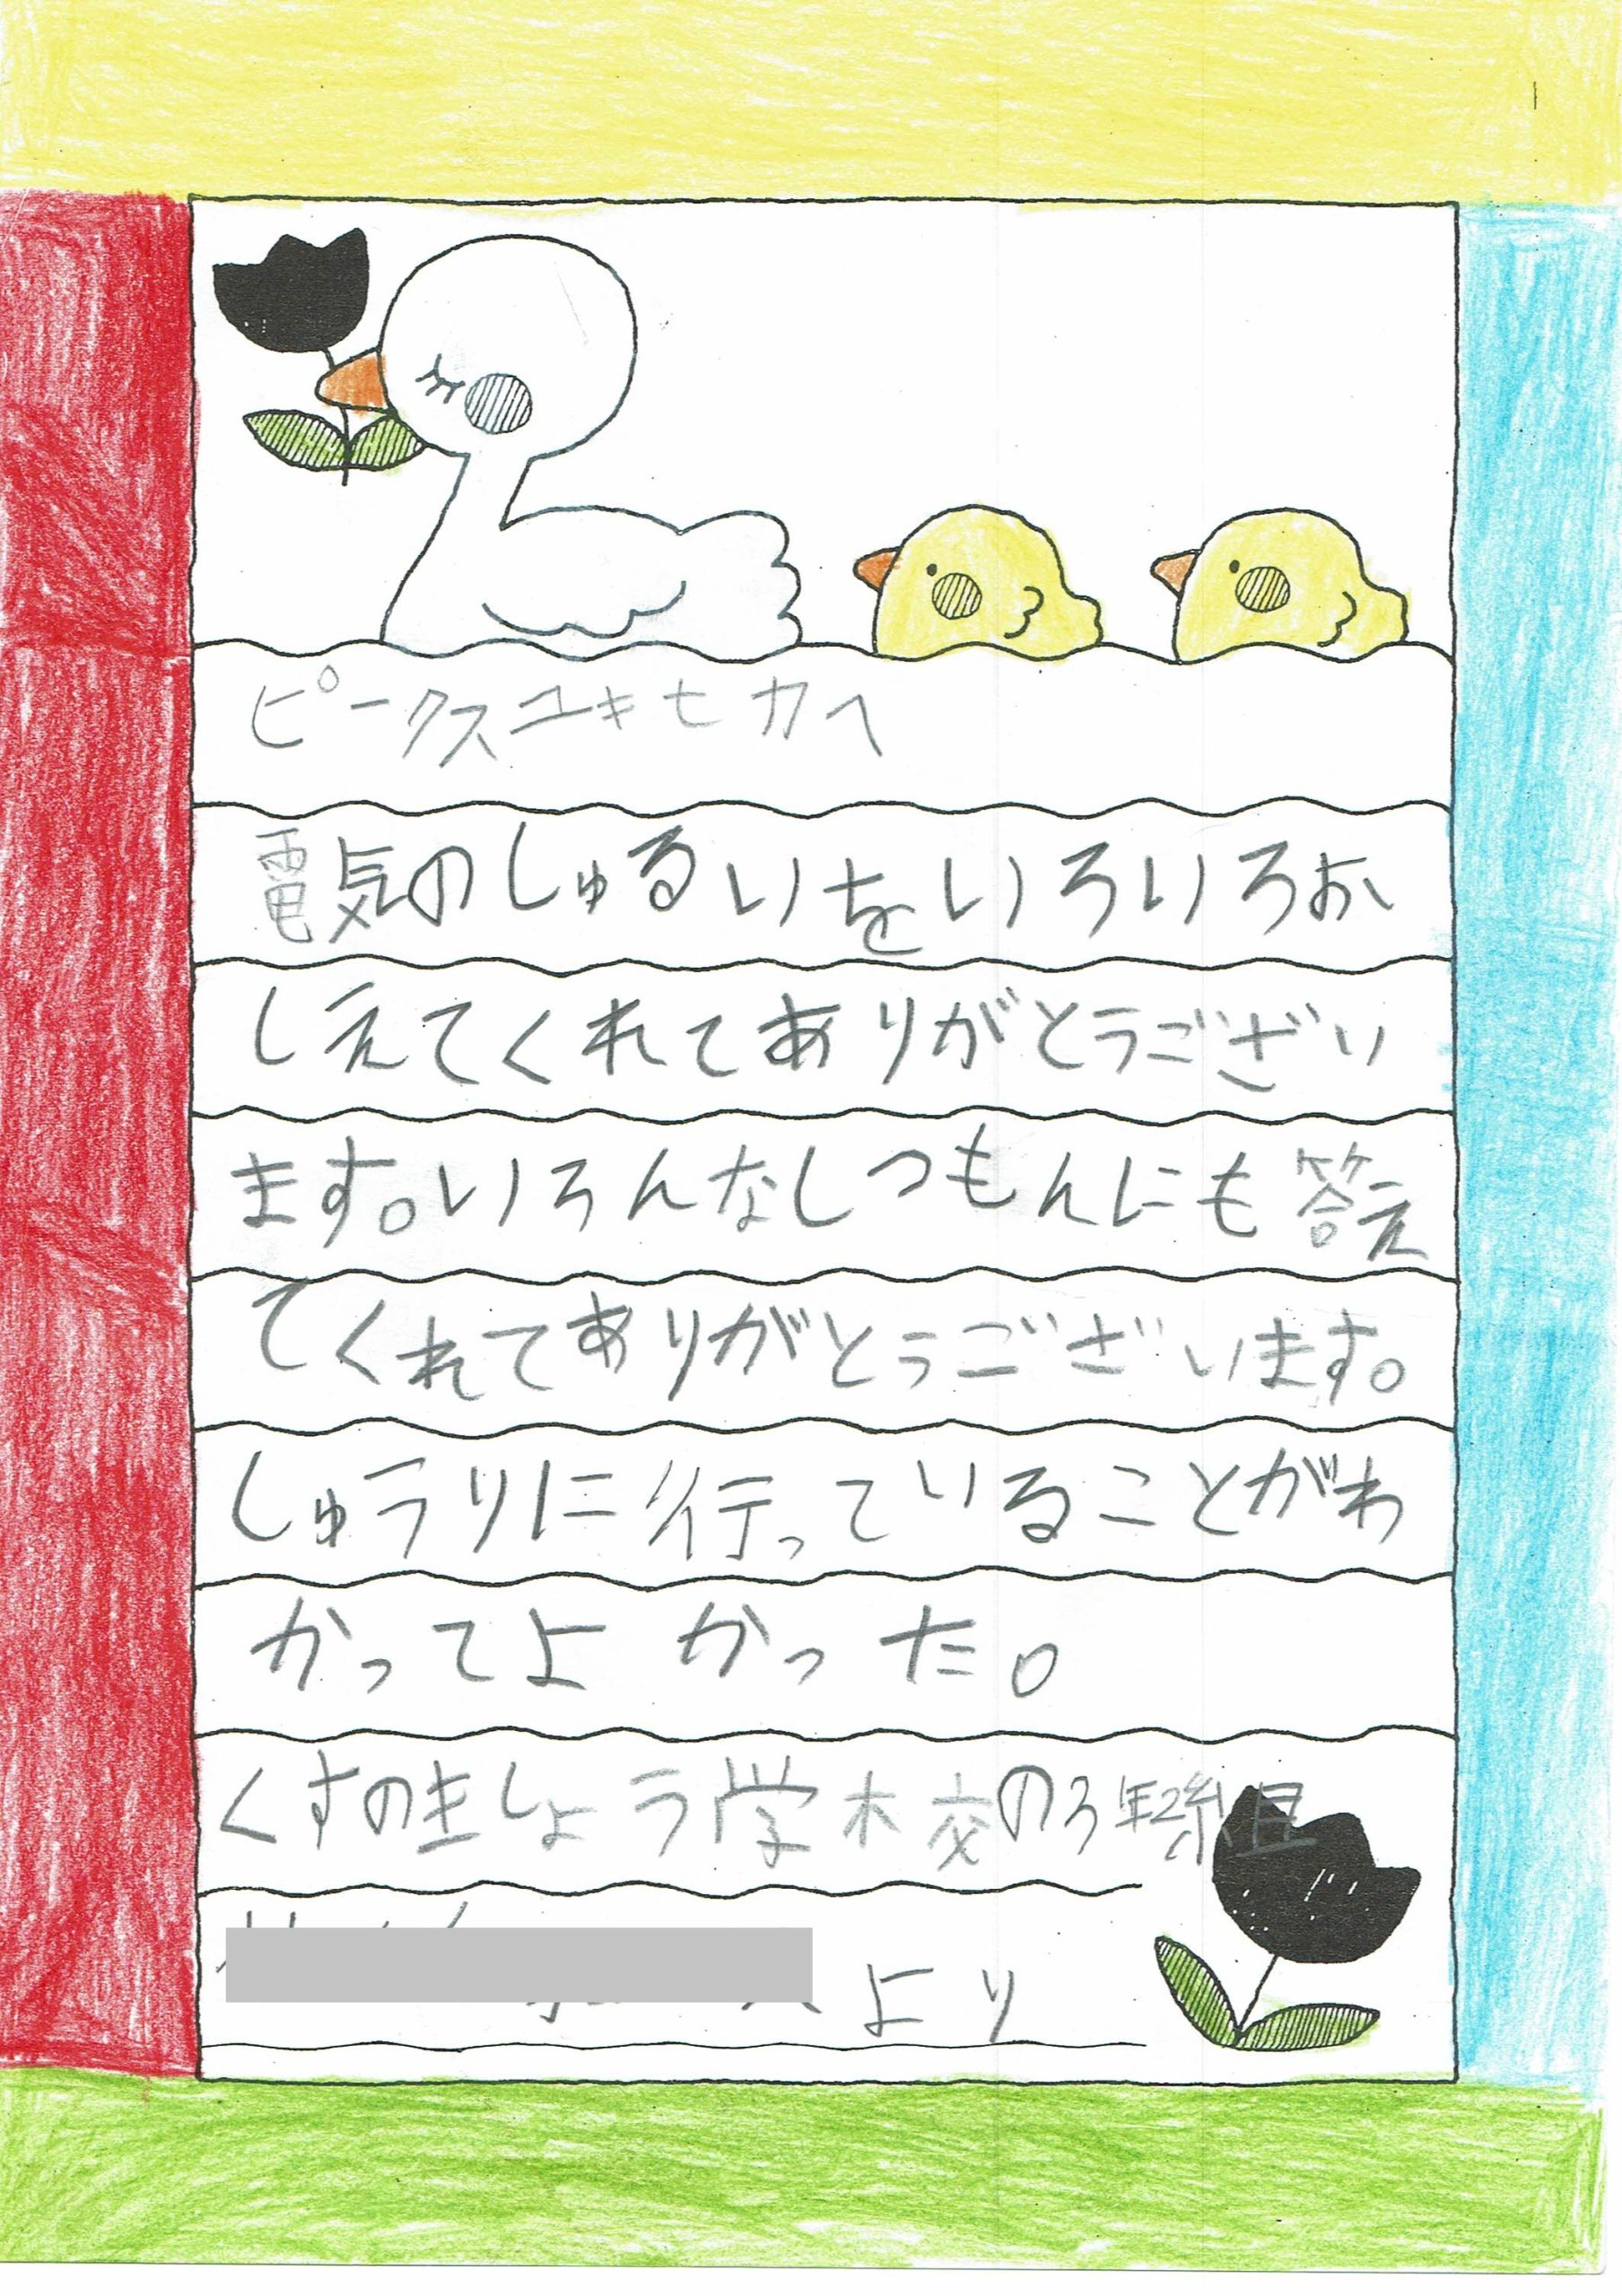 ピークスユキヒカへ
電気のしゅるいをいろいろお
しえてくれてありがとうござい
ます。いろんなしつもんにも答え
てくれてありがとうございます。
しゅうりに行っていることがわ
かってよかった。
くすのきしょう学木交の3年2組
より